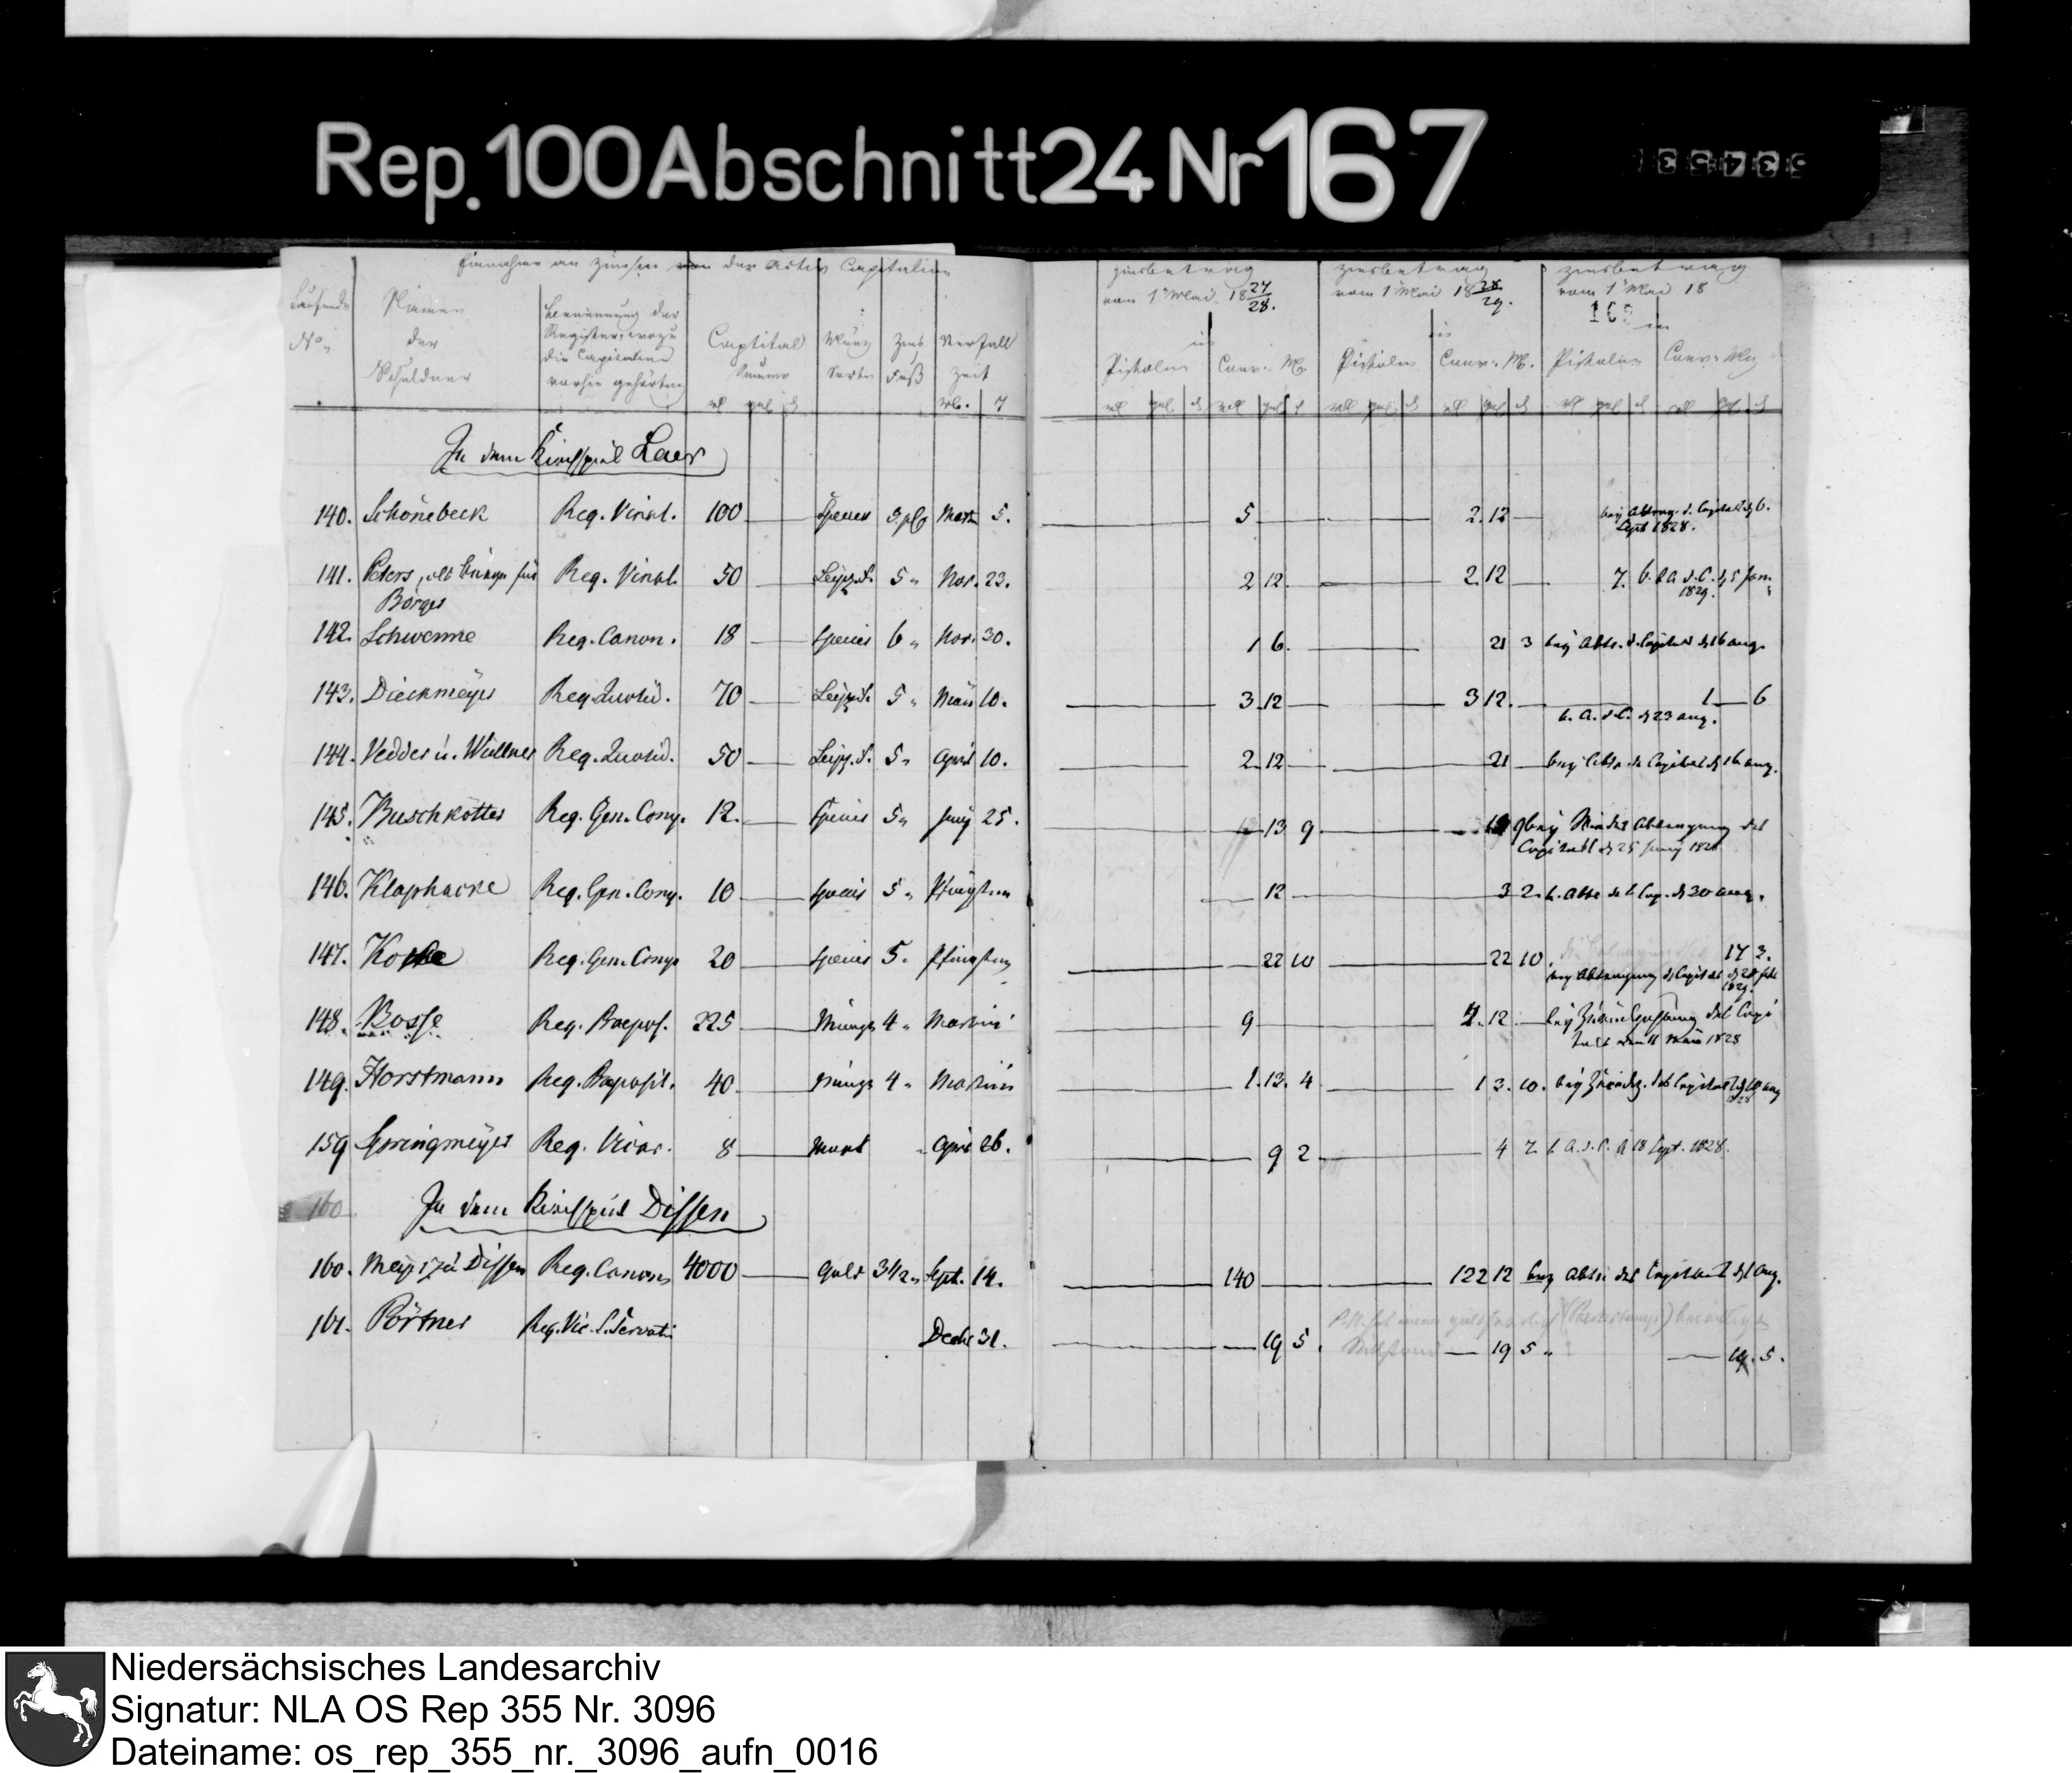 Rep. 100 Abschnitt 24 Nr 167
53453
Einnahme an Zinsen von den Activ Capitalien
Laufende No. Namen der Schuldner Benennung des Registers, wozu die Capitalien vorhin gehörten Capital Summe Münz Sorte Zins Fuß Verfall Zeit
Zinsbetrag vom 1 Mai 18 27/28. in Pistolen Conv. M.
Zinsbetrag vom 1 Mai 18 28/29. in Pistolen Conv. M.
Zinsbetrag vom 1 Mai 18 in Pistolen Conv. Mz
In dem Kirchspiel Laer
140. Schönebeck Reg. Vicat. 100 Species 5 Mart 5. 5 2. 12 Sept 1828.
141. Peters, als Bürge für Reg. Vicat. 50 Leipz. 5 " Nov. 23. 2 12. 2. 12 7. b. A. d. C. d 5 Jan. 1829.
Börger
142. Schwenne Reg. Canon. 18 Species 6 " Nov. 30. 1 6. 21 3 bey Abtr. d. Capitals d 16 aug.
143. Dieckmeyer Reg. Quotid. 70 Leipz. 5 " 10. 3. 12 3 12. 1 6
b. A. d. C. d 23 aug.
144. Vedder u. Wüllner Reg. Quotid. 50 Leipz. 5 " April 10. 2. 12 21 bey Abtr. des Capitals d 16 aug.
145. Buschkötter Reg. Gen. Comp. 12. Species 5 " Juny 25. 13 9. 9 bey Abtragung des
Capitals d 25 Juny 1828
146. Klaphacke Reg. Gen. Comp. 10 species 5 " Pfingsten 12 3 2. b. Abtr. des Cap. d 30 aug.
147. Reg. Gen. Comp 20 Species 5. Pfingsten 22 10 22 10. 17 3.
bey Abtragung d Capitals 1829.
148. Bosse Reg. Praepos. 225 Münze 4 " Martini 9 12. bey des Capi
tals den 11 1828
149. Horstmann Reg. Praeposit. 40 Münze 4 " Martini 1. 13. 4 1 3. 10. bey des Capitals aug 1828
159 Springmeyer Reg. Vicar. 8 April 26. 9 2 4 7 b A. d. C. d 18 Sept. 1828.
160 In dem Kirchspiel Dissen
160. Meyer zu Dissen Reg. Canon. 4000 Gold 3 1/2 " Sept. 14. 140 122 12 bey Abtr. des Capitals d 1 aug.
161. Pörtner Reg. Vic. S. Servatii Decbr 31. 19 5. 19 5 " 19. 5.
Niedersächsisches Landesarchiv
Signatur: NLA OS Rep 355 Nr. 3096
Dateiname: os_rep_355_nr._3096_aufn_0016